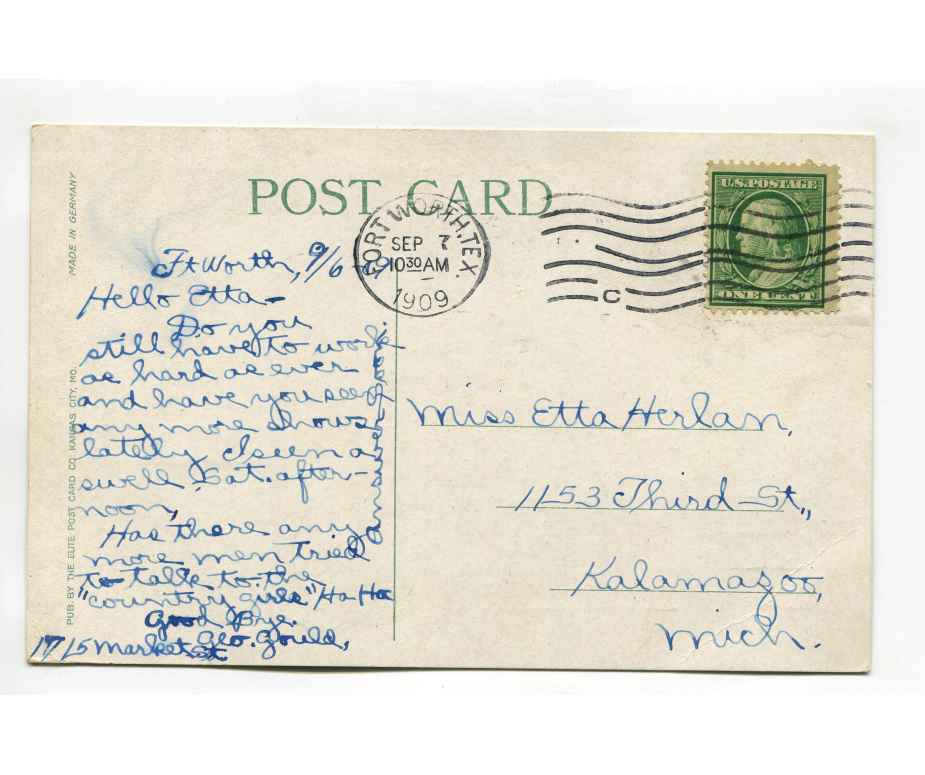 POST CARD
MADE IN GERMANY
PUB. BY THE ELITE POST CARD CO. KANSAS CITY, MO.
FORT WORTH, TEX.
SEP 7
10 30 AM
1909
C
U.S. POSTAGE
ONE CENT
Ft Worth, 9/6-09
Hello Etta-
Do you
still have to work
as hard as ever
and have you seen
any more shows
lately I seen a
swell Sat. after-
noon,
Has there any
more men tried
to talk to the
"country girls" Ha Ha
Good Bye.
Geo. Gould,
1715 Market St
answer soon
Miss Etta Herlan,
1153 Third St.,
Kalamazoo,
Mich.